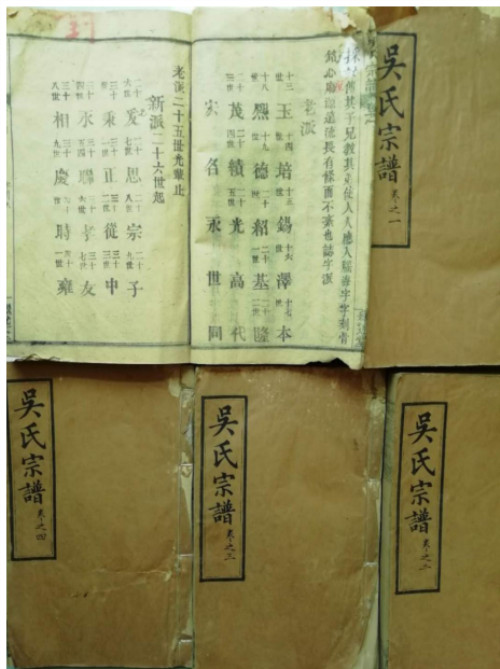 吳氏宗譜卷之一
傳其子兄教其弟使人人
銘心庶綿遠後長有條而不紊也誌字派
老派
十三世玉十四世培十五世錫十六世澤十七世本
十八世熙十九世德二十世紹二十一世基二十二世隆
二十三世茂二十四世績二十五世光高代
名永世同
老派二十五世光輩止
新派二十六世起
二十六世爰二十七世思二十八世宗二十九世子
三十世秉三十一世正三十二世從三十三世中
三十四世永三十五世聯三十六世孝三十七世友
三十八世相三十九世慶四十世時四十一世雍
吳氏宗譜卷之二
吳氏宗譜卷之三
吳氏宗譜卷之四